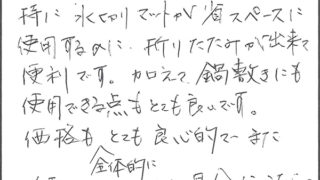 特に水切りマットが省スペースに
使用するのに、折りたたみが出来て
便利です。加えて、鍋敷きにも
使用できる点もとても良いです。
価格も とても良心的で また
全体的に